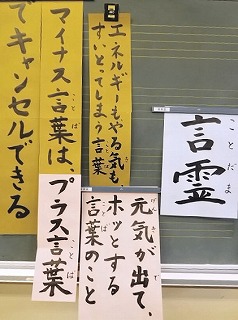 ことだま
言霊
エネルギーもやる気も、
すいとってしまう言葉
元気が出て、
ホッとする
言葉のこと
マイナス言葉は、
プラス言葉
でキャンセルできる